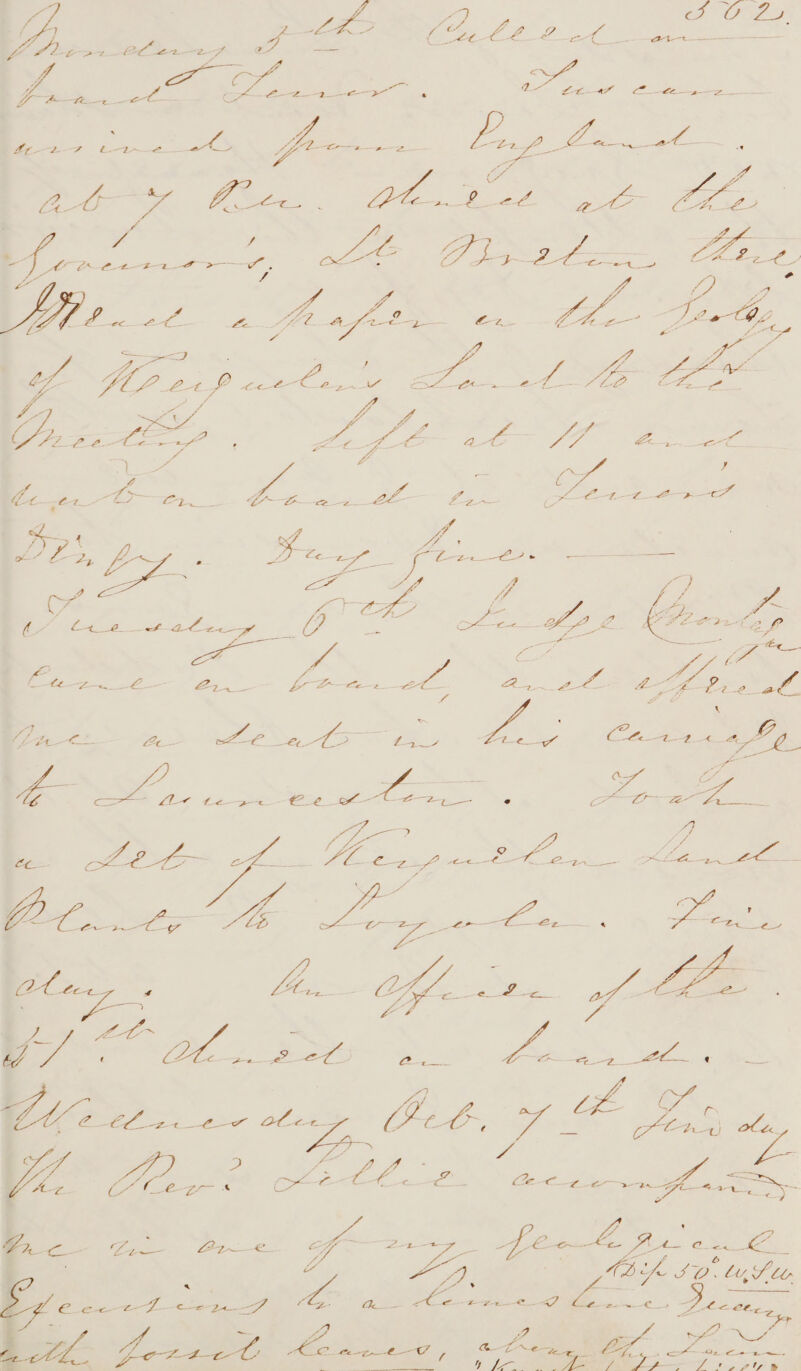 562.
Monday 5th Called on
board Terror. Tuscan
arrived from England.
at 7 P.M. dined at the
Governor's, Lt Breton there,
Read a paper on the Geology
of Kerguelen's Land to the
Meeting. left at 11 and
went on board in Terror's
Dingy. Day fine. —
Tuesday 6th Judge Montagu
came on board, and offered
me a seat in his carriage
to Launceston. Took
a set of Kerguelen Land
Plants to Loyola. Fine
day. An Officer of the
51st dined on board. —
Wednesday Oct. 7th Fine day
The Revd Lillie accompanied
me in one of my Geological
Dip 50°. W.S.W.
Excursions to a limestone Quarry
with fossil leaves, along the